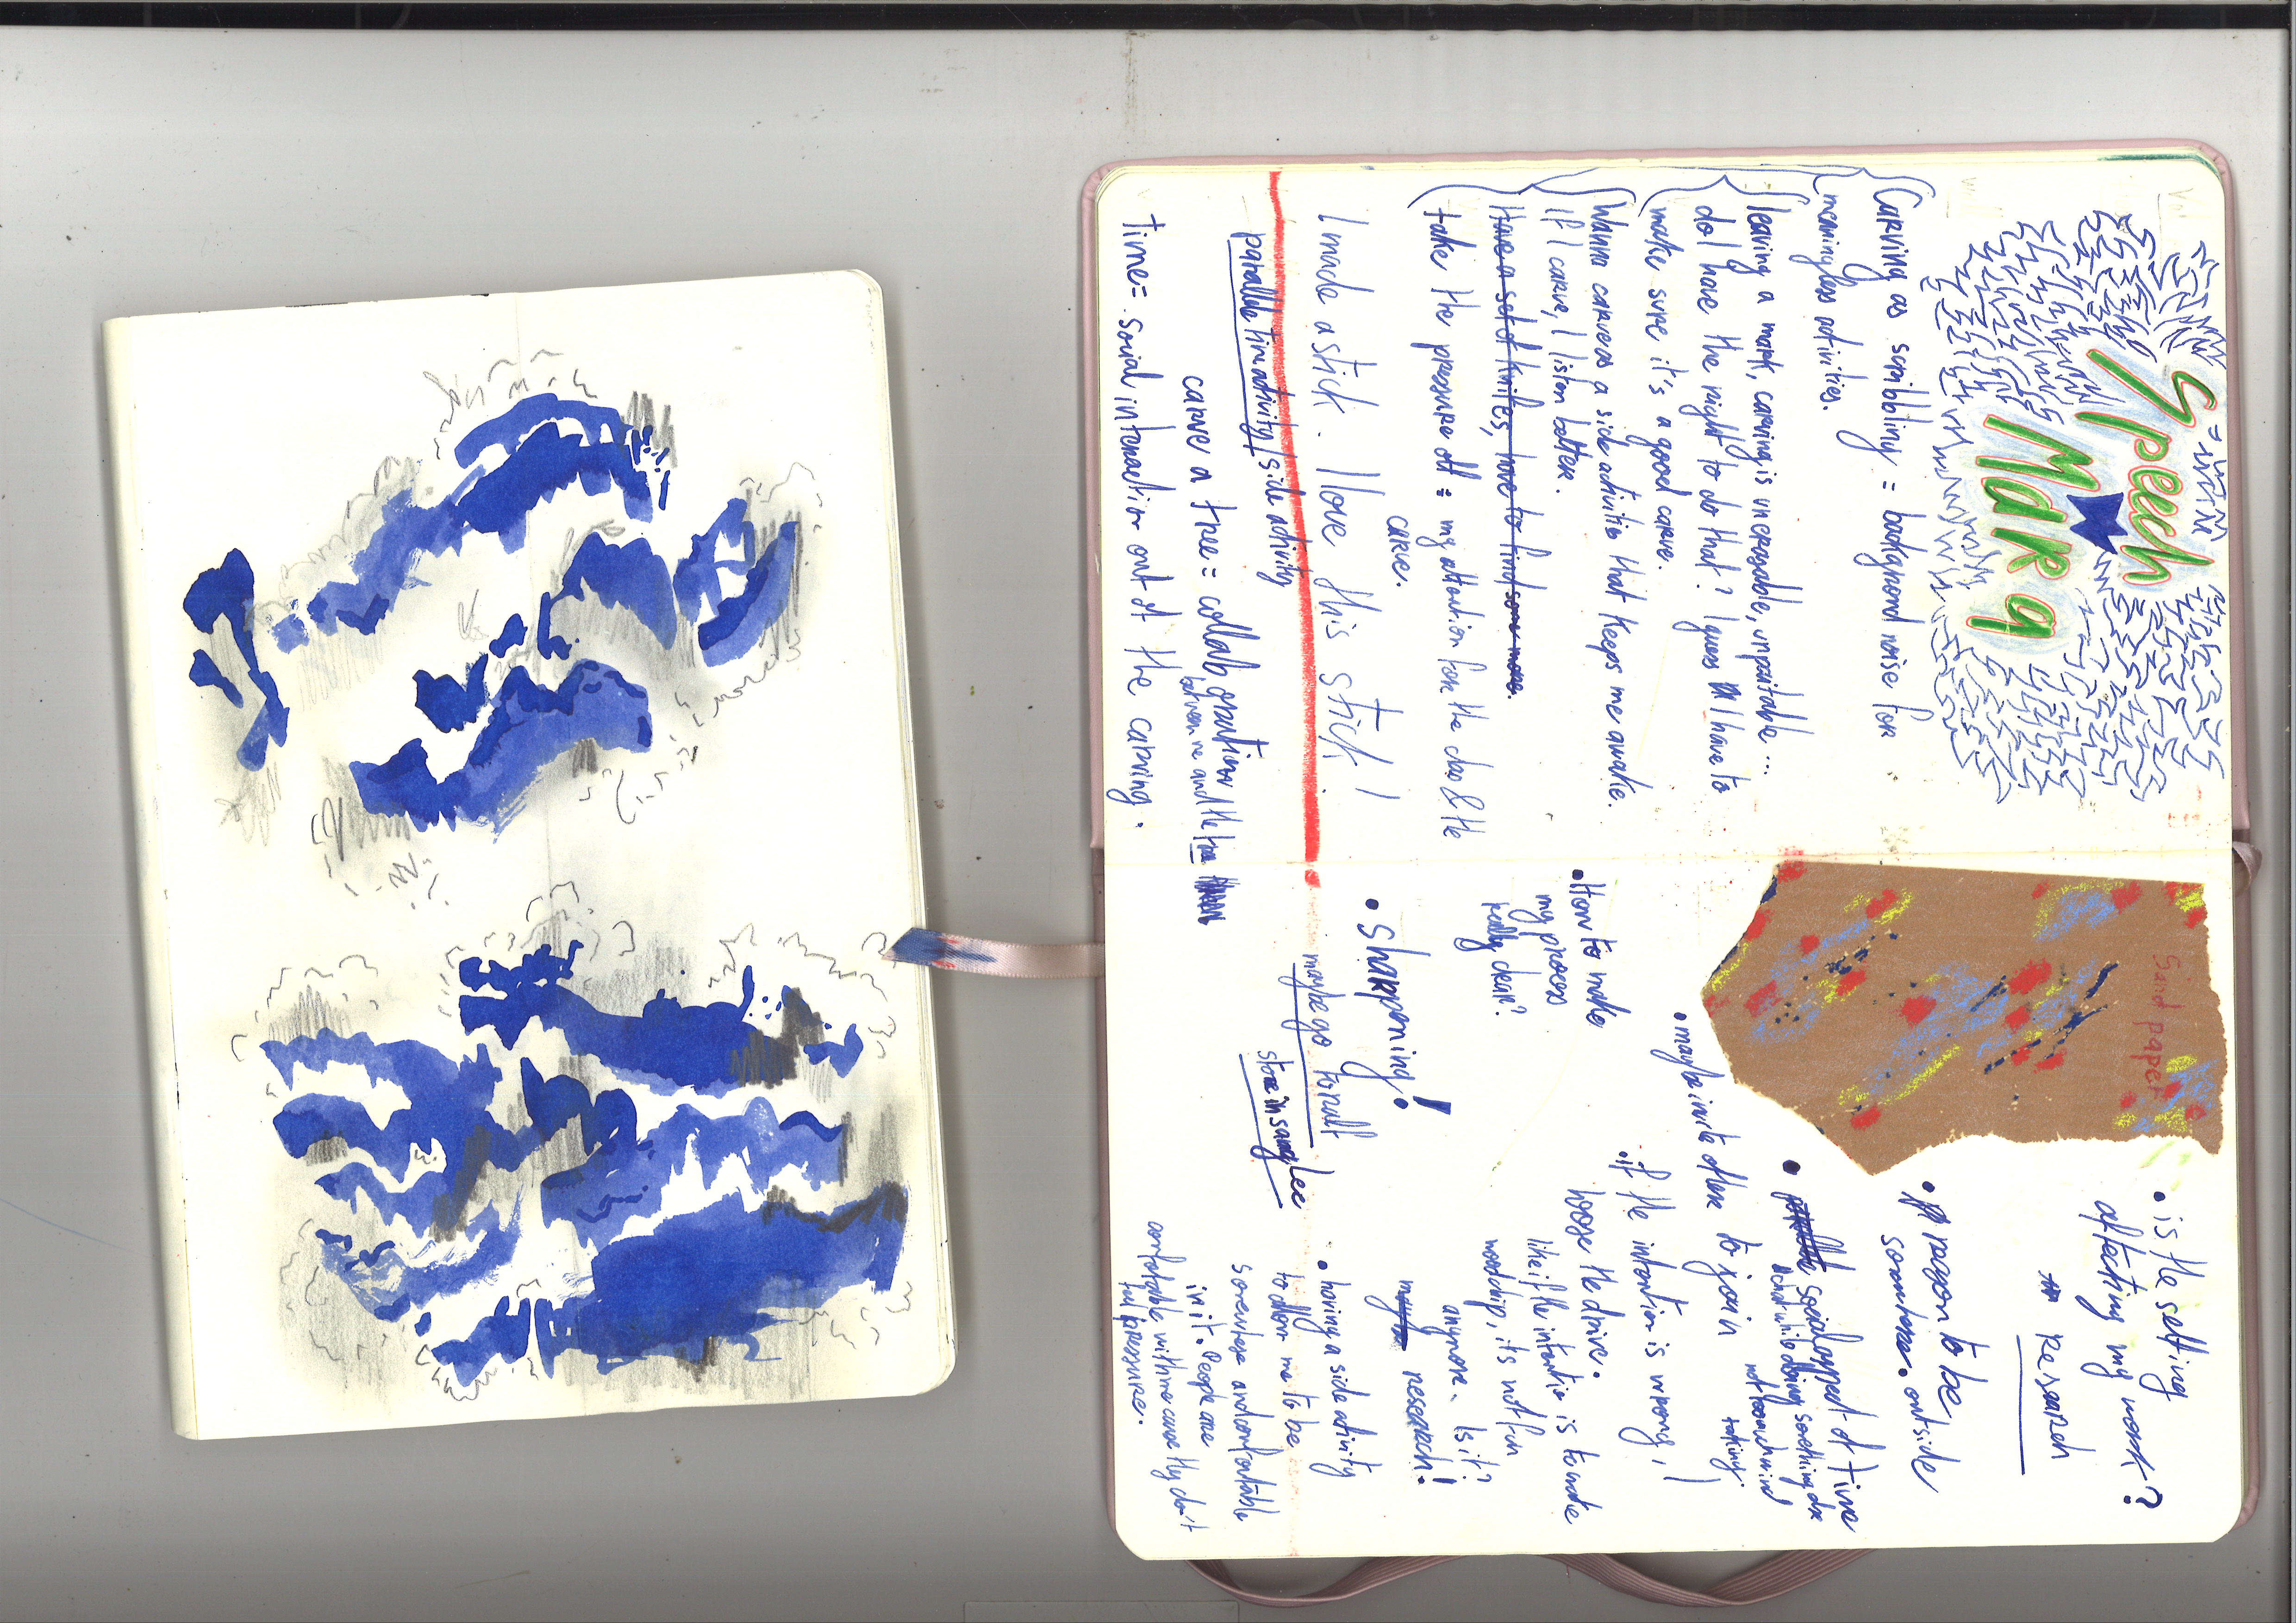 Speech
Mar 9
Carving as scribbling = background noise for
meaningless activities.
leaving a mark, carving is unerasable, unpaintable...
do I have the right to do that? I guess I have to
make sure it's a good carve.
Wanna carve as a side activitie that keeps me awake.
if I carve, I listen better.
Have a set of knifes, have to find some more.
take the pressure off = my attention for the class & the
carve.
I made a stick. I love this stick!
paralle time activity / side activity
carve a tree = collab operation
between me and the tree
time = Social interaction out of the carving.
Sand paper
• is the setting
affecting my work?
Research
• reason to be
somwhere. outside
• social aspect of time
while doing something else
not too much mind
taking.
• maybe invite other to join
• if the intention is wrong, I
loose the drive.
like if the intention is to make
woodchip, its not fun
anymore. Is it?
research!
• How to make
my process
really clear?
• Sharpening!
maybe go to ralf
store in sang Lee
• having a side activity
to allow me to be
somewhere and confortable
in it. People are
confortable with me cause they don't
feel pressure.